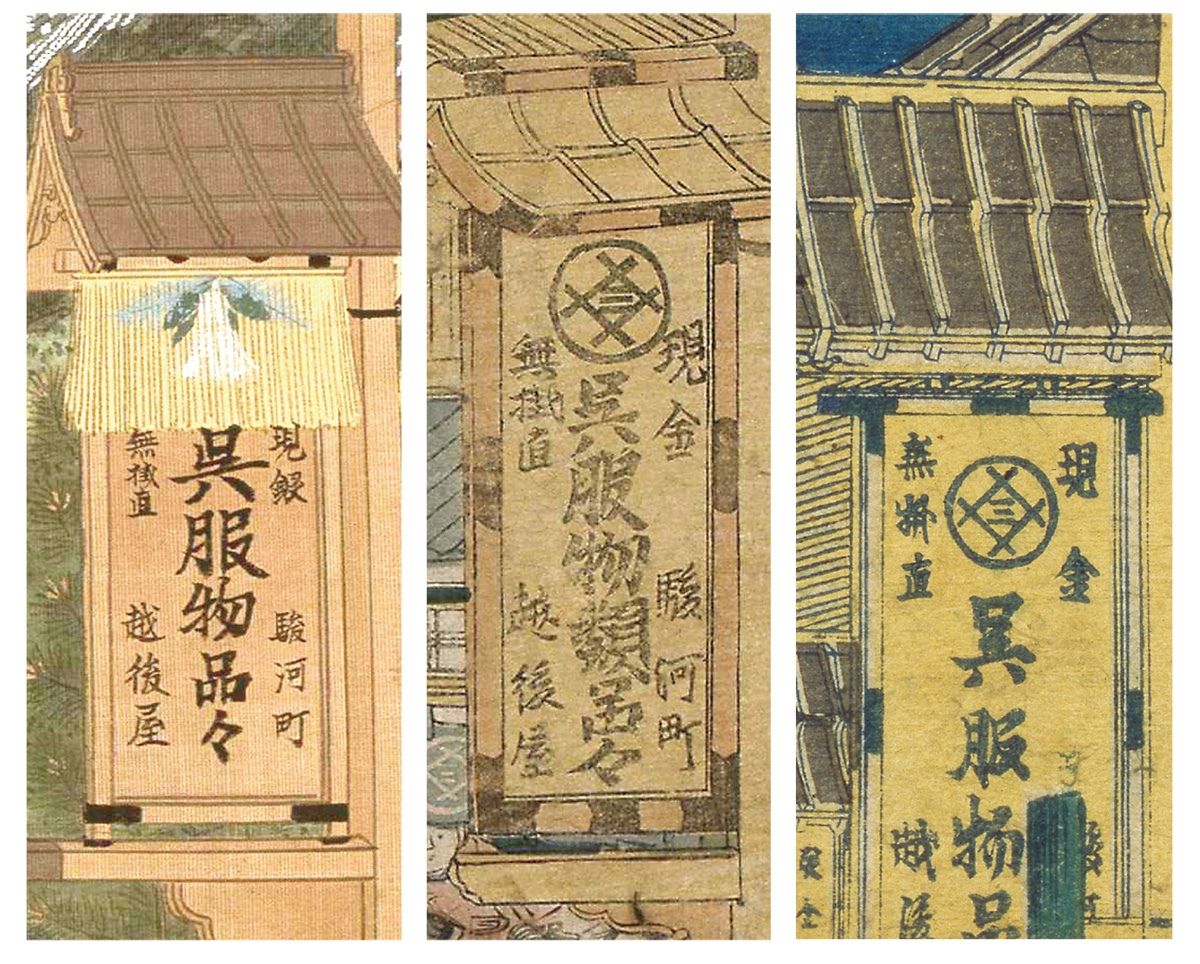 現銀 駿河町
呉服物品々
無掛直 越後屋
三
現金 駿河町
呉服物類品々
無掛直 越後屋
三
現金
呉服物品
無掛直 越後